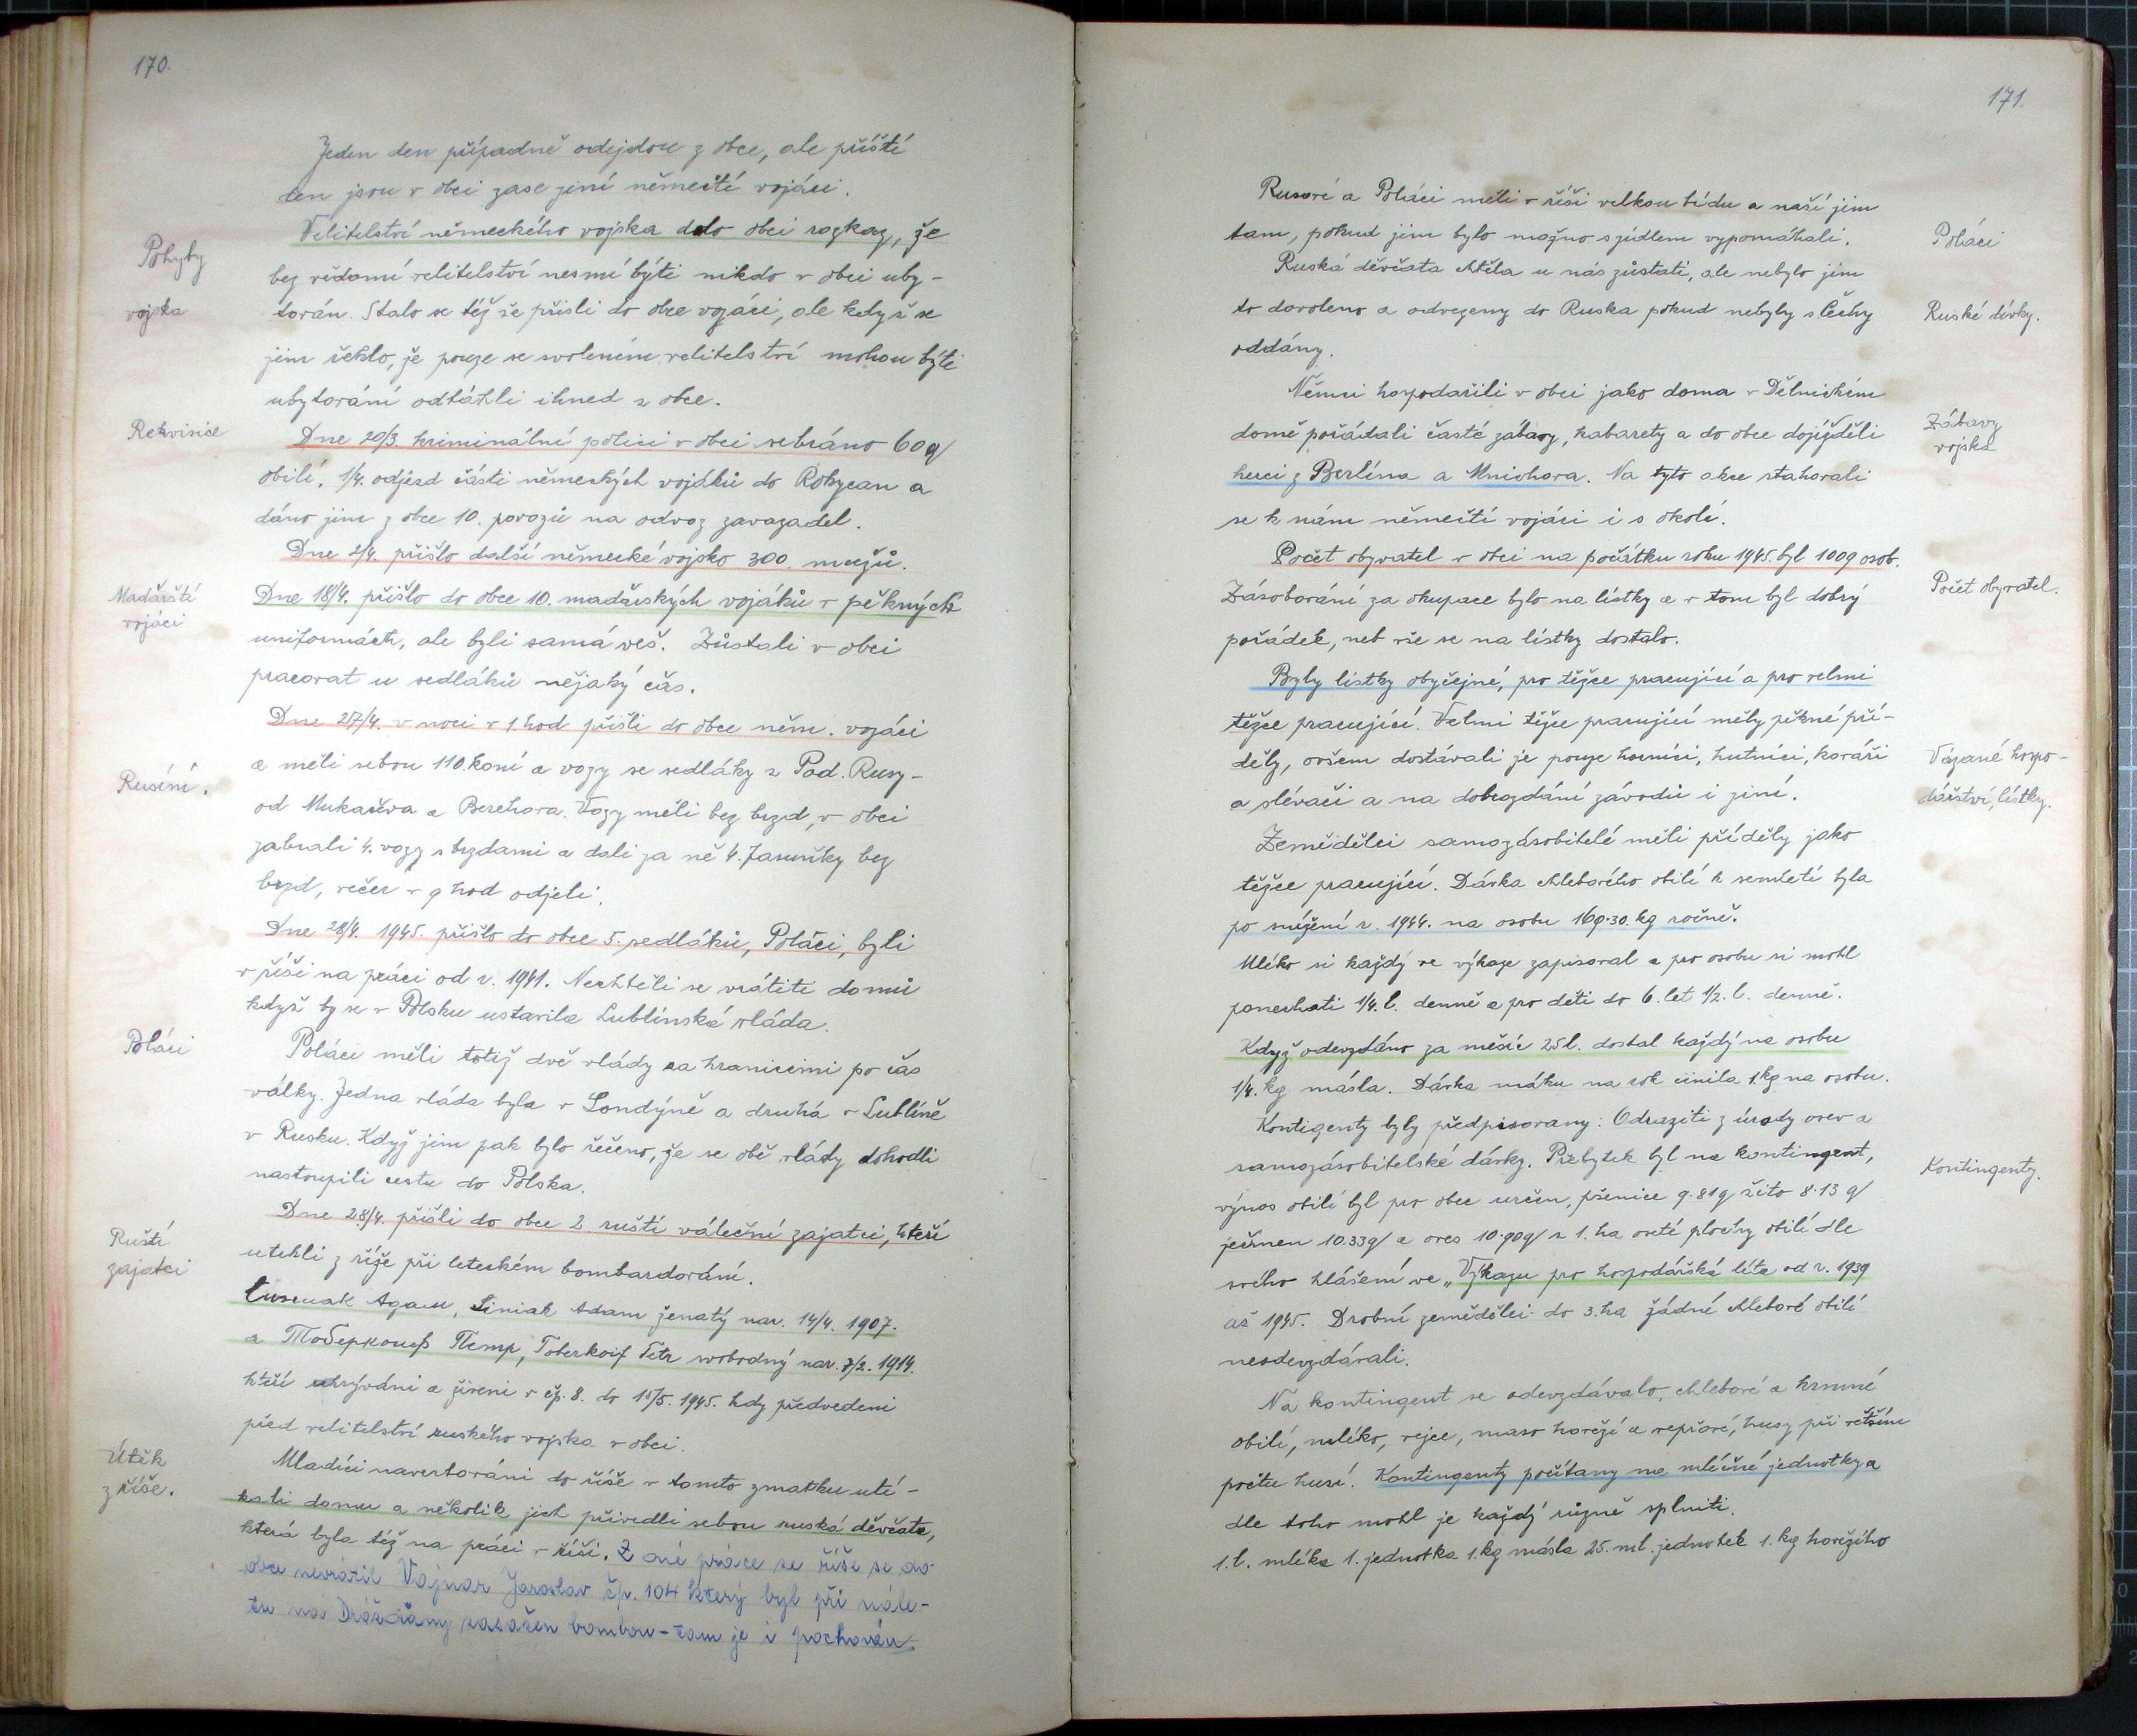 170.
Jeden den případně odejdou z obce, ale příští
den jsou v obci zase jiní němečtí vojáci.
Velitelství německého vojska dalo obci rozkaz, že
Pohyby
vojska
bez vědomí velitelství nesmí býti nikdo v obci uby-
tován. Stalo se též že přisli do obce vojáci, ale když se
jim řeklo, že pouze se svolením velitelství mohou býti
ubytováni odtáhli ihned z obce.
Rekvisice
Dne 20/3. kriminální policií v obci sebráno 60 q
obilí. 1/4. odjezd části německých vojáků do Rokycan a
dáno jim z obce 10. povozů na odvoz zavazadel.
Dne 2/4. přišlo další německé vojsko 300. mužů.
Maďarští
vojáci
Dne 18/4. přišlo do obce 10. maďarských vojáků v pěkných
uniformách, ale byli samá veš. Zůstali v obci
pracovat u sedláků nějaký čas.
Dne 27/4. v noci v 1. hod přišli do obce něm. vojáci
Rusíni.
a měli sebou 110. koní a vozy se sedláky z Pod. Rusy-
od Mukačeva a Berehova. Vozy měli bez brzd, v obci
zabrali 4. vozy s brzdami a dali za ně 4. žebřiňky bez
brzd, večer v 9 hod odjeli.
Dne 28/4. 1945. přišlo do obce 5. sedláků, Poláci, byli
v říši na práci od r. 1941. Nechtěli se vrátiti domů
když by se v Polsku ustavila Lublinská vláda.
Poláci
Poláci měli totiž dvě vlády za hranicemi po čas
války. Jedna vláda byla v Londýně a druhá v Lublíně
v Rusku. Když jim pak bylo řečeno, že se obě vlády dohodli
nastoupili cestu do Polska.
Ruští
zajatci
Dne 28/4. přišli do obce 2 ruští váleční zajatci, kteří
utekli z říše při leteckém bombardování.
Adam, Siniak Adam ženatý nar. 14/4. 1907.
a Тоберкоиф Петр, Toberkoif Petr svobodný nar. 7/2. 1914.
kteří ukrýváni a živeni v čp. 8. do 15/5. 1945. kdy předvedeni
před velitelství ruského vojska v obci.
Útěk
z říše.
Mladíci naverbováni do říše v tomto zmatku utí-
kali domu a několik jich přivedli sebou ruská děvčata,
která byla též na práci v říši. Z oné práce ve říši se do
obce nevrátil Vajnar Jaroslav čp. 104 který byl při nále-
tu na Drážďany zasažen bombou - tam je i pochován.
171.
Rusové a Poláci měli v říši velkou bídu a naší jim
tam, pokud jim bylo možno s jídlem vypomáhali.
Poláci
Ruská děvčata chtěla u nás zůstati, ale nebylo jim
to dovoleno a odvezeny do Ruska pokud nebyly s Čechy
Ruské dívky.
oddány.
Němci hospodařili v obci jako doma v Dělnickém
domě pořádali časté zábavy, kabarety a do obce dojížděli
Zábavy
vojska
herci z Berlína a Mnichova. Na tyto akce stahovali
se k nám němečtí vojáci i s okolí.
Počet obyvatel v obci na počátku roku 1945. byl 1009 osob.
Počet obyvatel.
Zásobování za okupace bylo na lístky a v tom byl dobrý
pořádek, neb vše se na lístky dostalo.
Byly lístky obyčejné, pro těžce pracující a pro velmi
těžce pracující. Velmi těžce pracující měly pěkné pří-
děly, ovšem dostávali je pouze horníci, hutníci, kováři
Vázané hospo-
dářství, lístky.
a slévači a na dobrozdání závodů i jiní.
Zemědělci samozásobitelé měli příděly jako
těžce pracující. Dávka chlebového obilí k semletí byla
po snížení r. 1944. na osobu 169.30. kg ročně.
Mléko si každý ve výkaze zapisoval a pro osobu si mohl
ponechati 1/4. l. denně a pro děti do 6. let 1/2. l. denně.
Když odevzdáno za měsíc 25 l. dostal každý na osobu
1/4. kg másla. Dávka máku na rok činila 1. kg na osobu.
Kontigenty byly předpisovany: Odraziti z úrody osev a
samozásobitelské dávky. Přebytek byl na kontingent,
Kontingenty.
výnos obilí byl pro obec určen, pšenice 9.81 q žito 8.13 q
ječmen 10.33 q a oves 10.90 q z 1. ha oseté plochy obilí dle
svého hlášení ve „Výkazu pro hospodářská léta od r. 1939
až 1945. Drobní zemědělci do 3. ha žádné chlebové obilí
neodevzdávali.
Na kontingent se odevzdávalo, chlebové a krmné
obilí, mléko, vejce, maso hovězí a vepřové, husy při větším
počtu husí. Kontingenty počítany na mléčné jednotky a
dle toho mohl je každý různě splniti.
1. l. mléka 1. jednotka 1. kg másla 25. ml. jednotek 1. kg hovězího